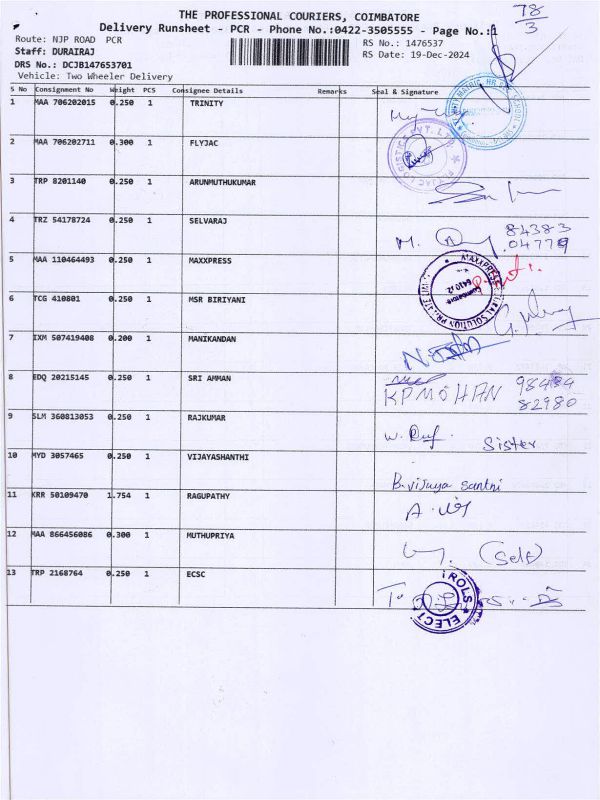 78
3
THE PROFESSIONAL COURIERS, COIMBATORE
Delivery Runsheet - PCR - Phone No.:0422-3505555 - Page No.:1
Route: NJP ROAD PCR
RS No.: 1476537
Staff: DURAIRAJ
RS Date: 19-Dec-2024
DRS No.: DCJB147653701
Vehicle: Two Wheeler Delivery
S No Consignment No Weight PCS Consignee Details Remarks Seal & Signature
1 MAA 706202015 0.250 1 TRINITY
2 MAA 706202711 0.300 1 FLYJAC
3 TRP 8201140 0.250 1 ARUNMUTHUKUMAR
4 TRZ 54178724 0.250 1 SELVARAJ
84383
04779
5 MAA 110464493 0.250 1 MAXXPRESS
6 TCG 410801 0.250 1 MSR BIRIYANI
7 IXM 507419408 0.200 1 MANIKANDAN
8 EDQ 20215145 0.250 1 SRI AMMAN
KPMOHAN 98434
82980
9 SLM 360813053 0.250 1 RAJKUMAR
Sister
10 MYD 3057465 0.250 1 VIJAYASHANTHI
B.vijaya santhi
11 KRR 50109470 1.754 1 RAGUPATHY
12 MAA 866456086 0.300 1 MUTHUPRIYA
(Self)
13 TRP 2168764 0.250 1 ECSC